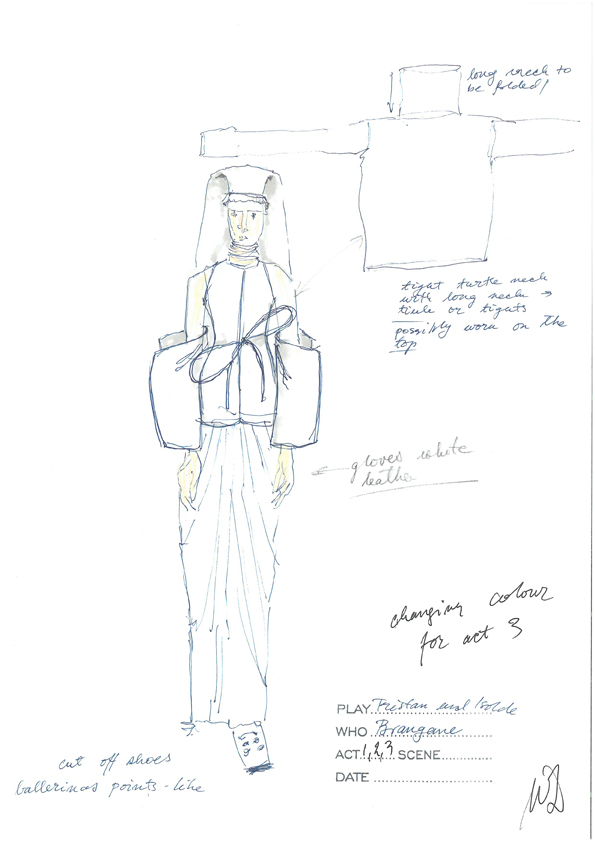 long neck to
be folded!
tight turtle neck
with long neck →
tiule or tights
possibly worn on the
top
gloves white
leather
changing colour
for act 3
PLAY Tristan und Isolde
WHO Brangane
ACT 1,2,3 SCENE
DATE
cut off shoes
ballerinas points-like